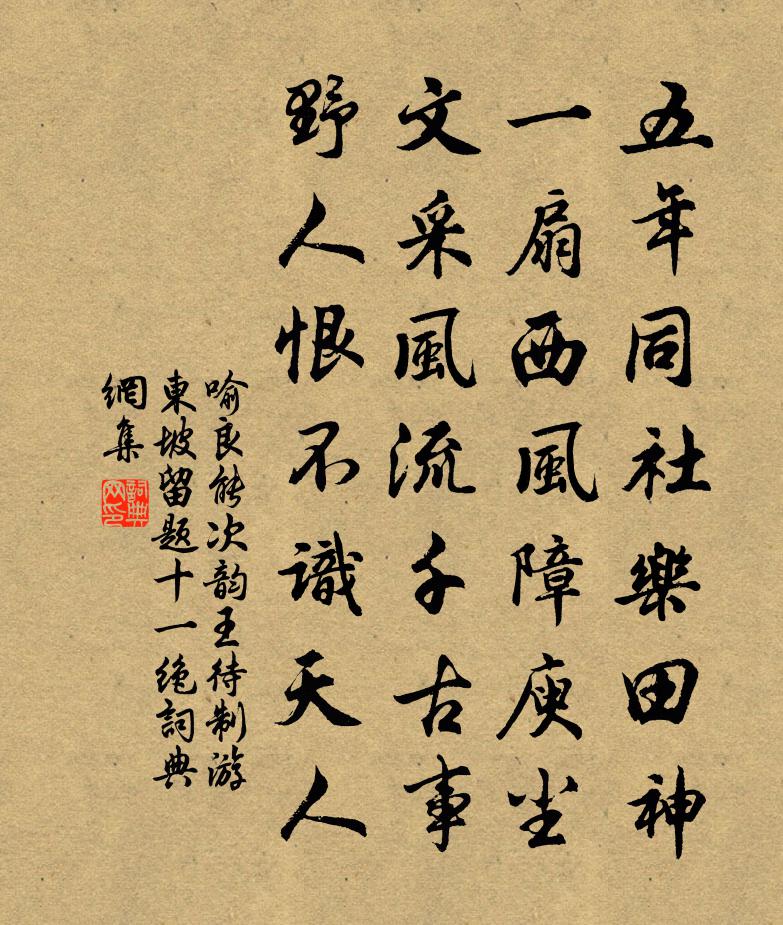 五年同社樂田神
一扇西風障庾尘
文采風流千古事
野人恨不識天人
喻良能次韵王待制游
東坡留題十一絶詞典
網集
詞典
网印